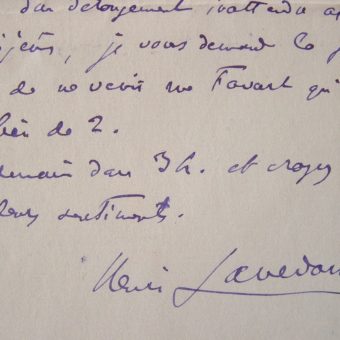 d'un dérangement inattendu
je vous demande la
de ne venir rue Favart qu'
de 2.
dans 3 h. et croyez
sentiments.
Henri Lavedan